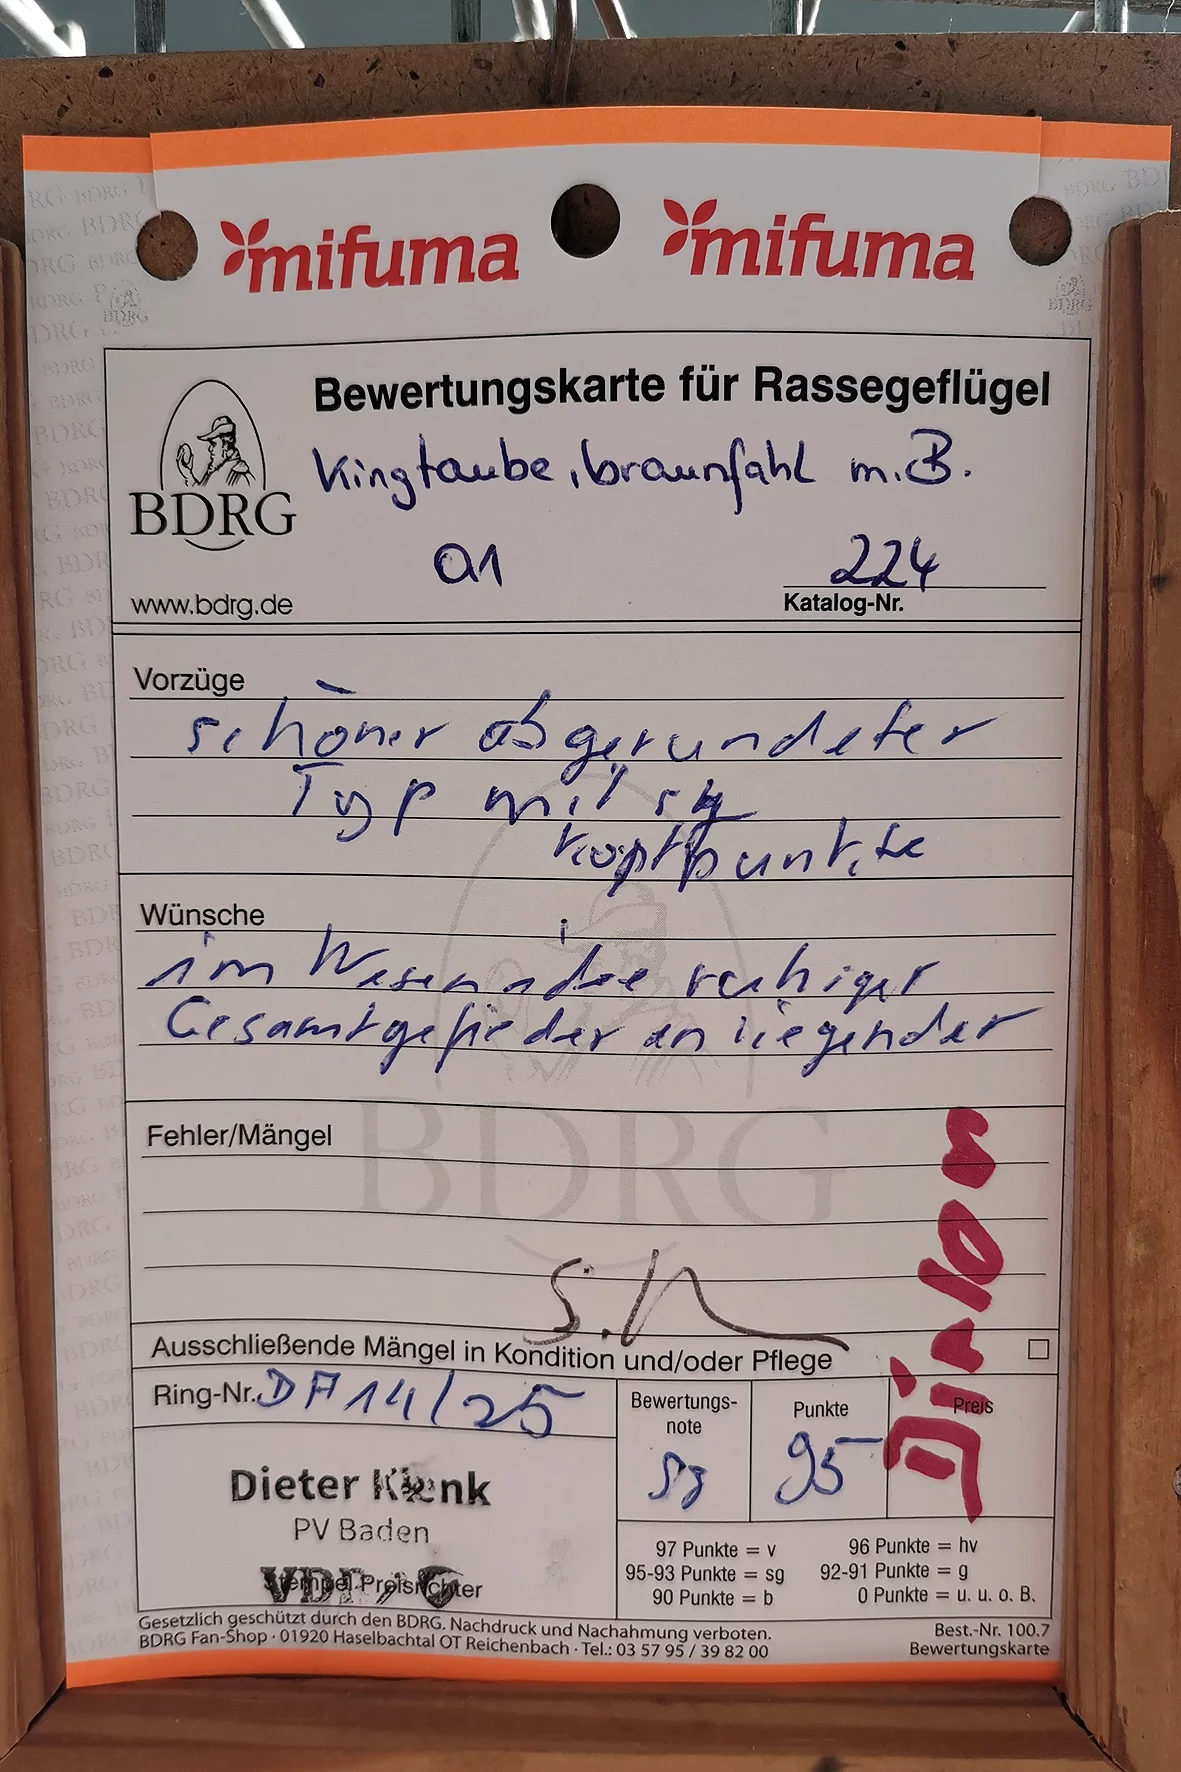 mifuma mifuma
Bewertungskarte für Rassegeflügel
Kingtaube, braunfahl m. B.
BDRG
01 224
www.bdrg.de Katalog-Nr.
Vorzüge
schöner abgerundeter
Typ mit sg
Kopfpunkte
Wünsche
im Wesen ruhiger
Gesamtgefieder anliegender
BDRG
Fehler/Mängel
Ausschließende Mängel in Kondition und/oder Pflege
Ring-Nr. DA 14/25
Bewertungs-
note
sg
Punkte
95
Preis
Dieter Klenk
PV Baden
Stempel Preisrichter
97 Punkte = v 96 Punkte = hv
95-93 Punkte = sg 92-91 Punkte = g
90 Punkte = b 0 Punkte = u. u. o. B.
Gesetzlich geschützt durch den BDRG. Nachdruck und Nachahmung verboten.
BDRG Fan-Shop · 01920 Haselbachtal OT Reichenbach · Tel.: 03 57 95 / 39 82 00
Best.-Nr. 100.7
Bewertungskarte